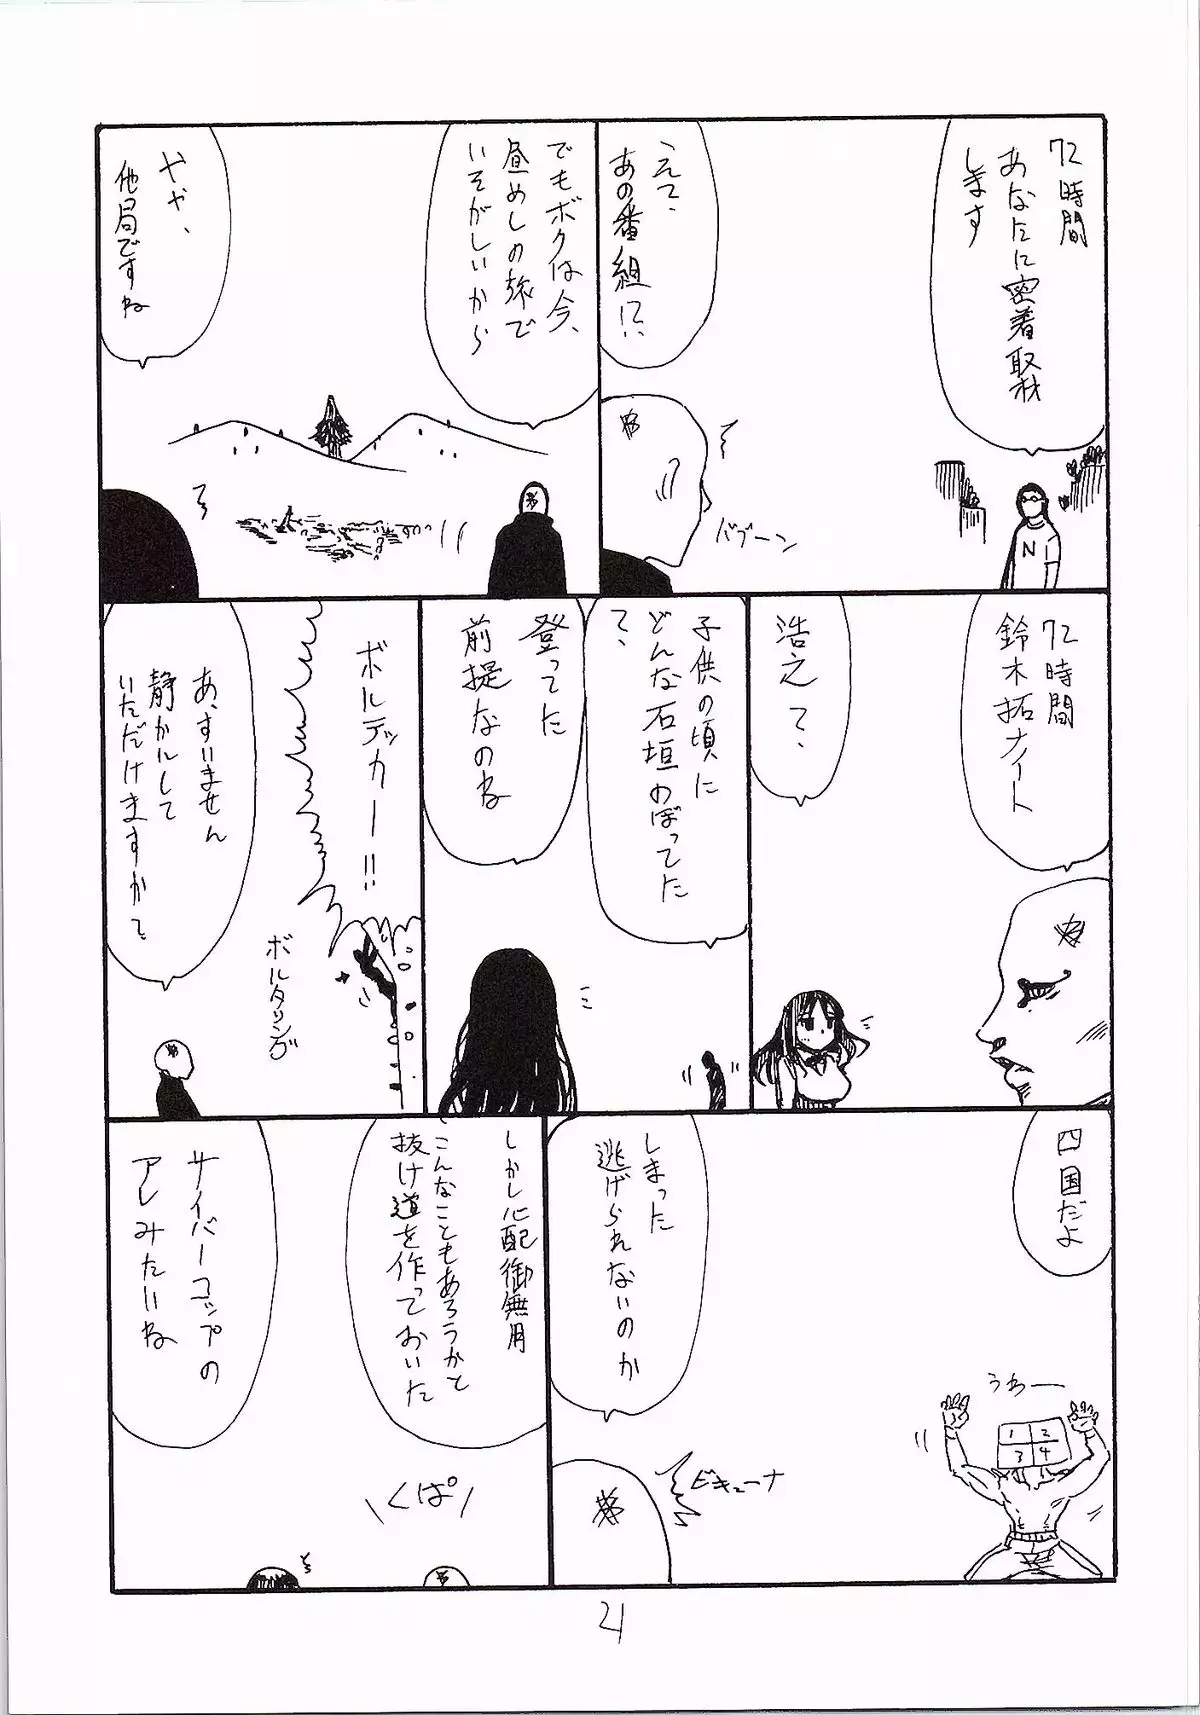 72時間
あなたに密着取材
します
N
ええて、
あの番組!?
バブーン
でもボクは今、
昼めしの旅で
いそがしいから
やや、
他局ですね
72時間
鈴木拓ナイト
浩之て、
子供の頃に
どんな石垣のぼってた
て、
登ってた
前提なのね
ボルテッカー!!
ボルタリング
あ、すいません
静かにして
いただけますかて、
四国だよ
うわー
1 2
3 4
しまった
逃げられないのか
ビキューナ
しかし心配御無用
こんなこともあろうかと
抜け道を作っておいた
くぱぁ
サイバーコップの
アレみたいね
21